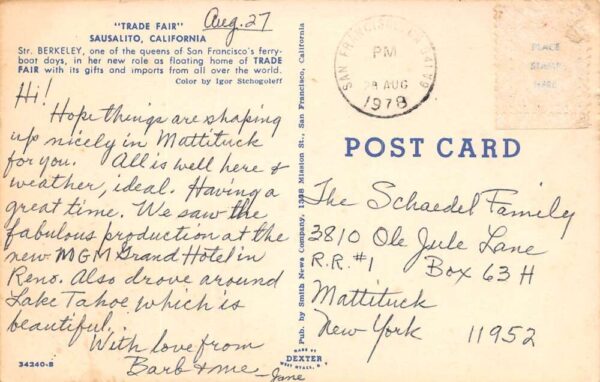 Aug. 27
"TRADE FAIR"
SAUSALITO, CALIFORNIA
Str. BERKELEY, one of the queens of San Francisco's ferry-
boat days, in her new role as floating home of TRADE
FAIR with its gifts and imports from all over the world.
Color by Igor Stchogoleff
Hi!
Hope things are shaping
up nicely in Mattituck
for you. All is well here &
weather, ideal. Having a
great time. We saw the
fabulous production at the
new MGM Grand Hotel in
Reno. Also drove around
Lake Tahoe which is
beautiful.
With love from
Barb & me - Jane
34240-B
Pub. by Smith News Company, 1398 Mission St., San Francisco, California
MADE BY
DEXTER
WEST NYACK, N.Y.
SAN FRANCISCO, CA 941
PM
28 AUG
1978
PLACE
STAMP
HERE
POST CARD
The Schaedel Family
3810 Ole Jule Lane
R.R. #1 Box 63 H
Mattituck
New York 11952